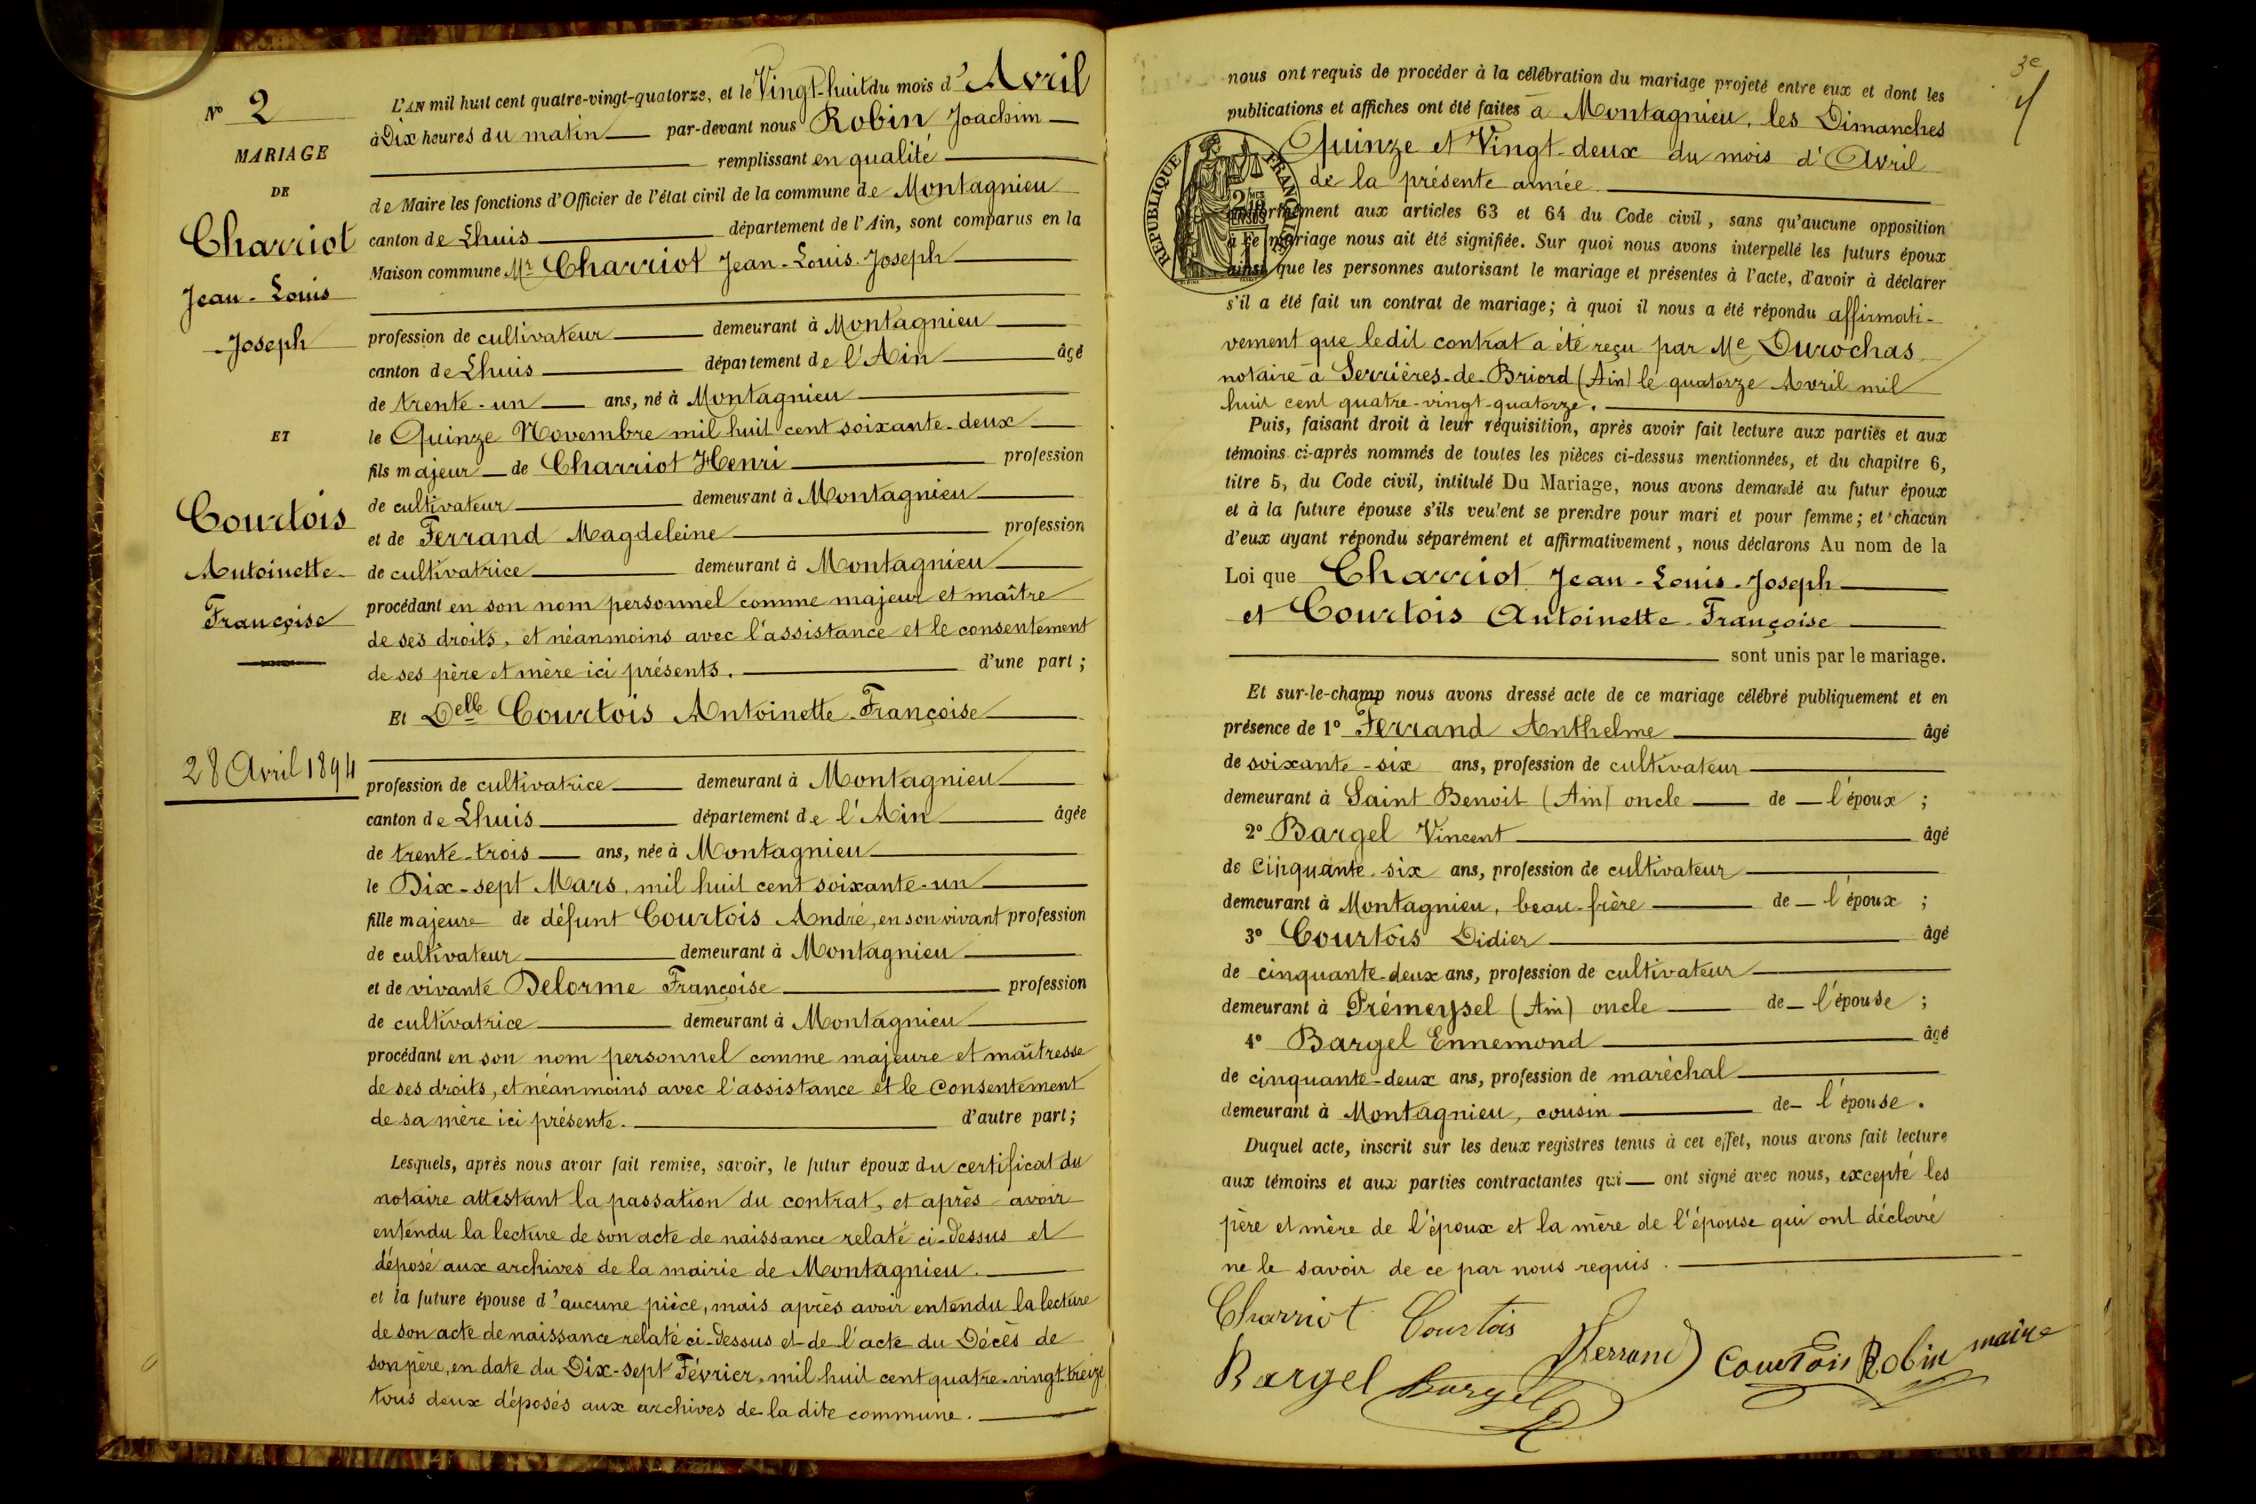 N° 2
MARIAGE
DE
Charriot
Jean-Louis
Joseph
ET
Courtois
Antoinette
Françoise
28 Avril 1894
L'AN mil huit cent quatre-vingt-quatorze, et le Vingt-huit du mois d'Avril
à Dix heures du matin par-devant nous Robin Joachim
remplissant en qualité
de Maire les fonctions d'Officier de l'état civil de la commune de Montagnieu
canton de Lhuis département de l'Ain, sont comparus en la
Maison commune Mr Charriot Jean-Louis-Joseph
profession de cultivateur demeurant à Montagnieu
canton de Lhuis département de l'Ain âgé
de trente-un ans, né à Montagnieu
le Quinze Novembre mil huit cent soixante-deux
fils majeur de Charriot Henri profession
de cultivateur demeurant à Montagnieu
et de Ferrand Magdeleine profession
de cultivatrice demeurant à Montagnieu
procédant en son nom personnel comme majeur et maître
de ses droits, et néanmoins avec l'assistance et le consentement
de ses père et mère ici présents. d'une part ;
Et Delle Courtois Antoinette-Françoise
profession de cultivatrice demeurant à Montagnieu
canton de Lhuis département de l'Ain âgée
de trente-trois ans, née à Montagnieu
le Dix-sept Mars, mil huit cent soixante-un
fille majeure de défunt Courtois André, en son vivant profession
de cultivateur demeurant à Montagnieu
et de vivante Delorme Françoise profession
de cultivatrice demeurant à Montagnieu
procédant en son nom personnel comme majeure et maîtresse
de ses droits, et néanmoins avec l'assistance et le consentement
de sa mère ici présente. d'autre part ;
Lesquels, après nous avoir fait remise, savoir, le futur époux du certificat du
notaire attestant la passation du contrat, et après avoir
entendu la lecture de son acte de naissance relaté ci-dessus et
déposé aux archives de la mairie de Montagnieu.
et la future épouse d'aucune pièce, mais après avoir entendu la lecture
de son acte de naissance relaté ci-dessus et de l'acte du Décès de
son père, en date du Dix-sept Février, mil huit cent quatre-vingt-treize
tous deux déposés aux archives de la dite commune.
3e
nous ont requis de procéder à la célébration du mariage projeté entre eux et dont les
publications et affiches ont été faites à Montagnieu, les Dimanches
Quinze et Vingt-deux du mois d'Avril
de la présente année
RÉPUBLIQUE FRANÇAISE
conformément aux articles 63 et 64 du Code civil, sans qu'aucune opposition
à ce mariage nous ait été signifiée. Sur quoi nous avons interpellé les futurs époux
ainsi que les personnes autorisant le mariage et présentes à l'acte, d'avoir à déclarer
s'il a été fait un contrat de mariage ; à quoi il nous a été répondu affirmati-
vement que ledit contrat a été reçu par Me Durochas
notaire à Serrières-de-Briord (Ain) le quatorze Avril mil
huit cent quatre-vingt-quatorze.
Puis, faisant droit à leur réquisition, après avoir fait lecture aux parties et aux
témoins ci-après nommés de toutes les pièces ci-dessus mentionnées, et du chapitre 6,
titre 5, du Code civil, intitulé Du Mariage, nous avons demandé au futur époux
et à la future épouse s'ils veulent se prendre pour mari et pour femme ; et chacun
d'eux ayant répondu séparément et affirmativement, nous déclarons Au nom de la
Loi que Charriot Jean-Louis-Joseph
et Courtois Antoinette-Françoise
sont unis par le mariage.
Et sur-le-champ nous avons dressé acte de ce mariage célébré publiquement et en
présence de 1° Ferrand Anthelme âgé
de soixante-six ans, profession de cultivateur
demeurant à Saint Benoit (Ain) oncle de l'époux ;
2° Bargel Vincent âgé
de Cinquante-six ans, profession de cultivateur
demeurant à Montagnieu, beau-frère de l'époux ;
3° Courtois Didier âgé
de cinquante-deux ans, profession de cultivateur
demeurant à Prémeysel (Ain) oncle de l'épouse ;
4° Bargel Ennemond âgé
de cinquante-deux ans, profession de maréchal
demeurant à Montagnieu, cousin de l'épouse.
Duquel acte, inscrit sur les deux registres tenus à cet effet, nous avons fait lecture
aux témoins et aux parties contractantes qui ont signé avec nous, excepté les
père et mère de l'époux et la mère de l'épouse qui ont déclaré
ne le savoir de ce par nous requis.
Charriot Courtois Ferrand Courtois Robin maire
Bargel Bargel